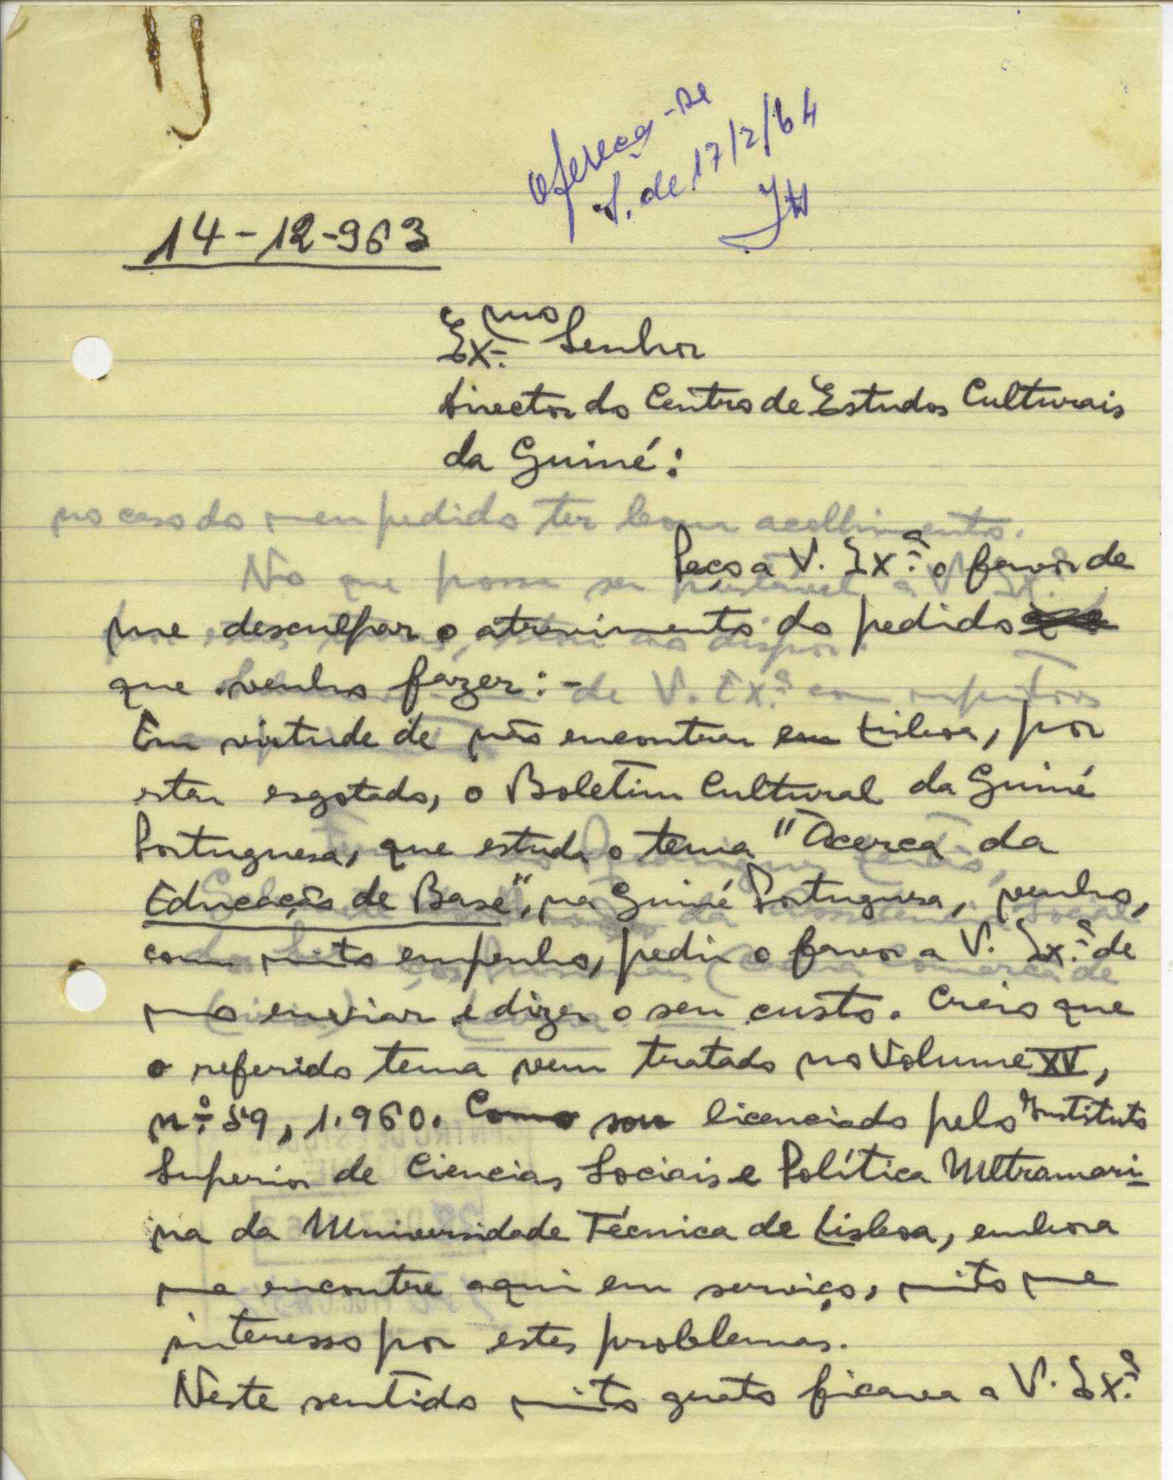 Ofereça-se
17/2/64
14-12-963
Ex.mo Senhor
Director do Centro de Estudos Culturais
da Guiné:
no caso do meu pedido ter bom acolhimento.
Peço a V. Ex.ª o favor de
me desculpar o atrevimento do pedido
que venho fazer:-
Em virtude de não encontrar em Lisboa, por
estar esgotado, o Boletim Cultural da Guiné
Portuguesa, que estuda o tema "Acerca da
Educação de Base", na Guiné Portuguesa, venho,
com muito empenho, pedir o favor a V. Ex.ª de
mo enviar e dizer o seu custo. Creio que
o referido tema vem tratado no Volume XV,
n.º 59, 1.960. Como sou licenciado pelo Instituto
Superior de Ciencias Sociais e Política Ultramari-
na da Universidade Técnica de Lisboa, embora
me encontre aqui em serviço, muito me
interesso por estes problemas.
Neste sentido muito grato ficava a V. Ex.ª